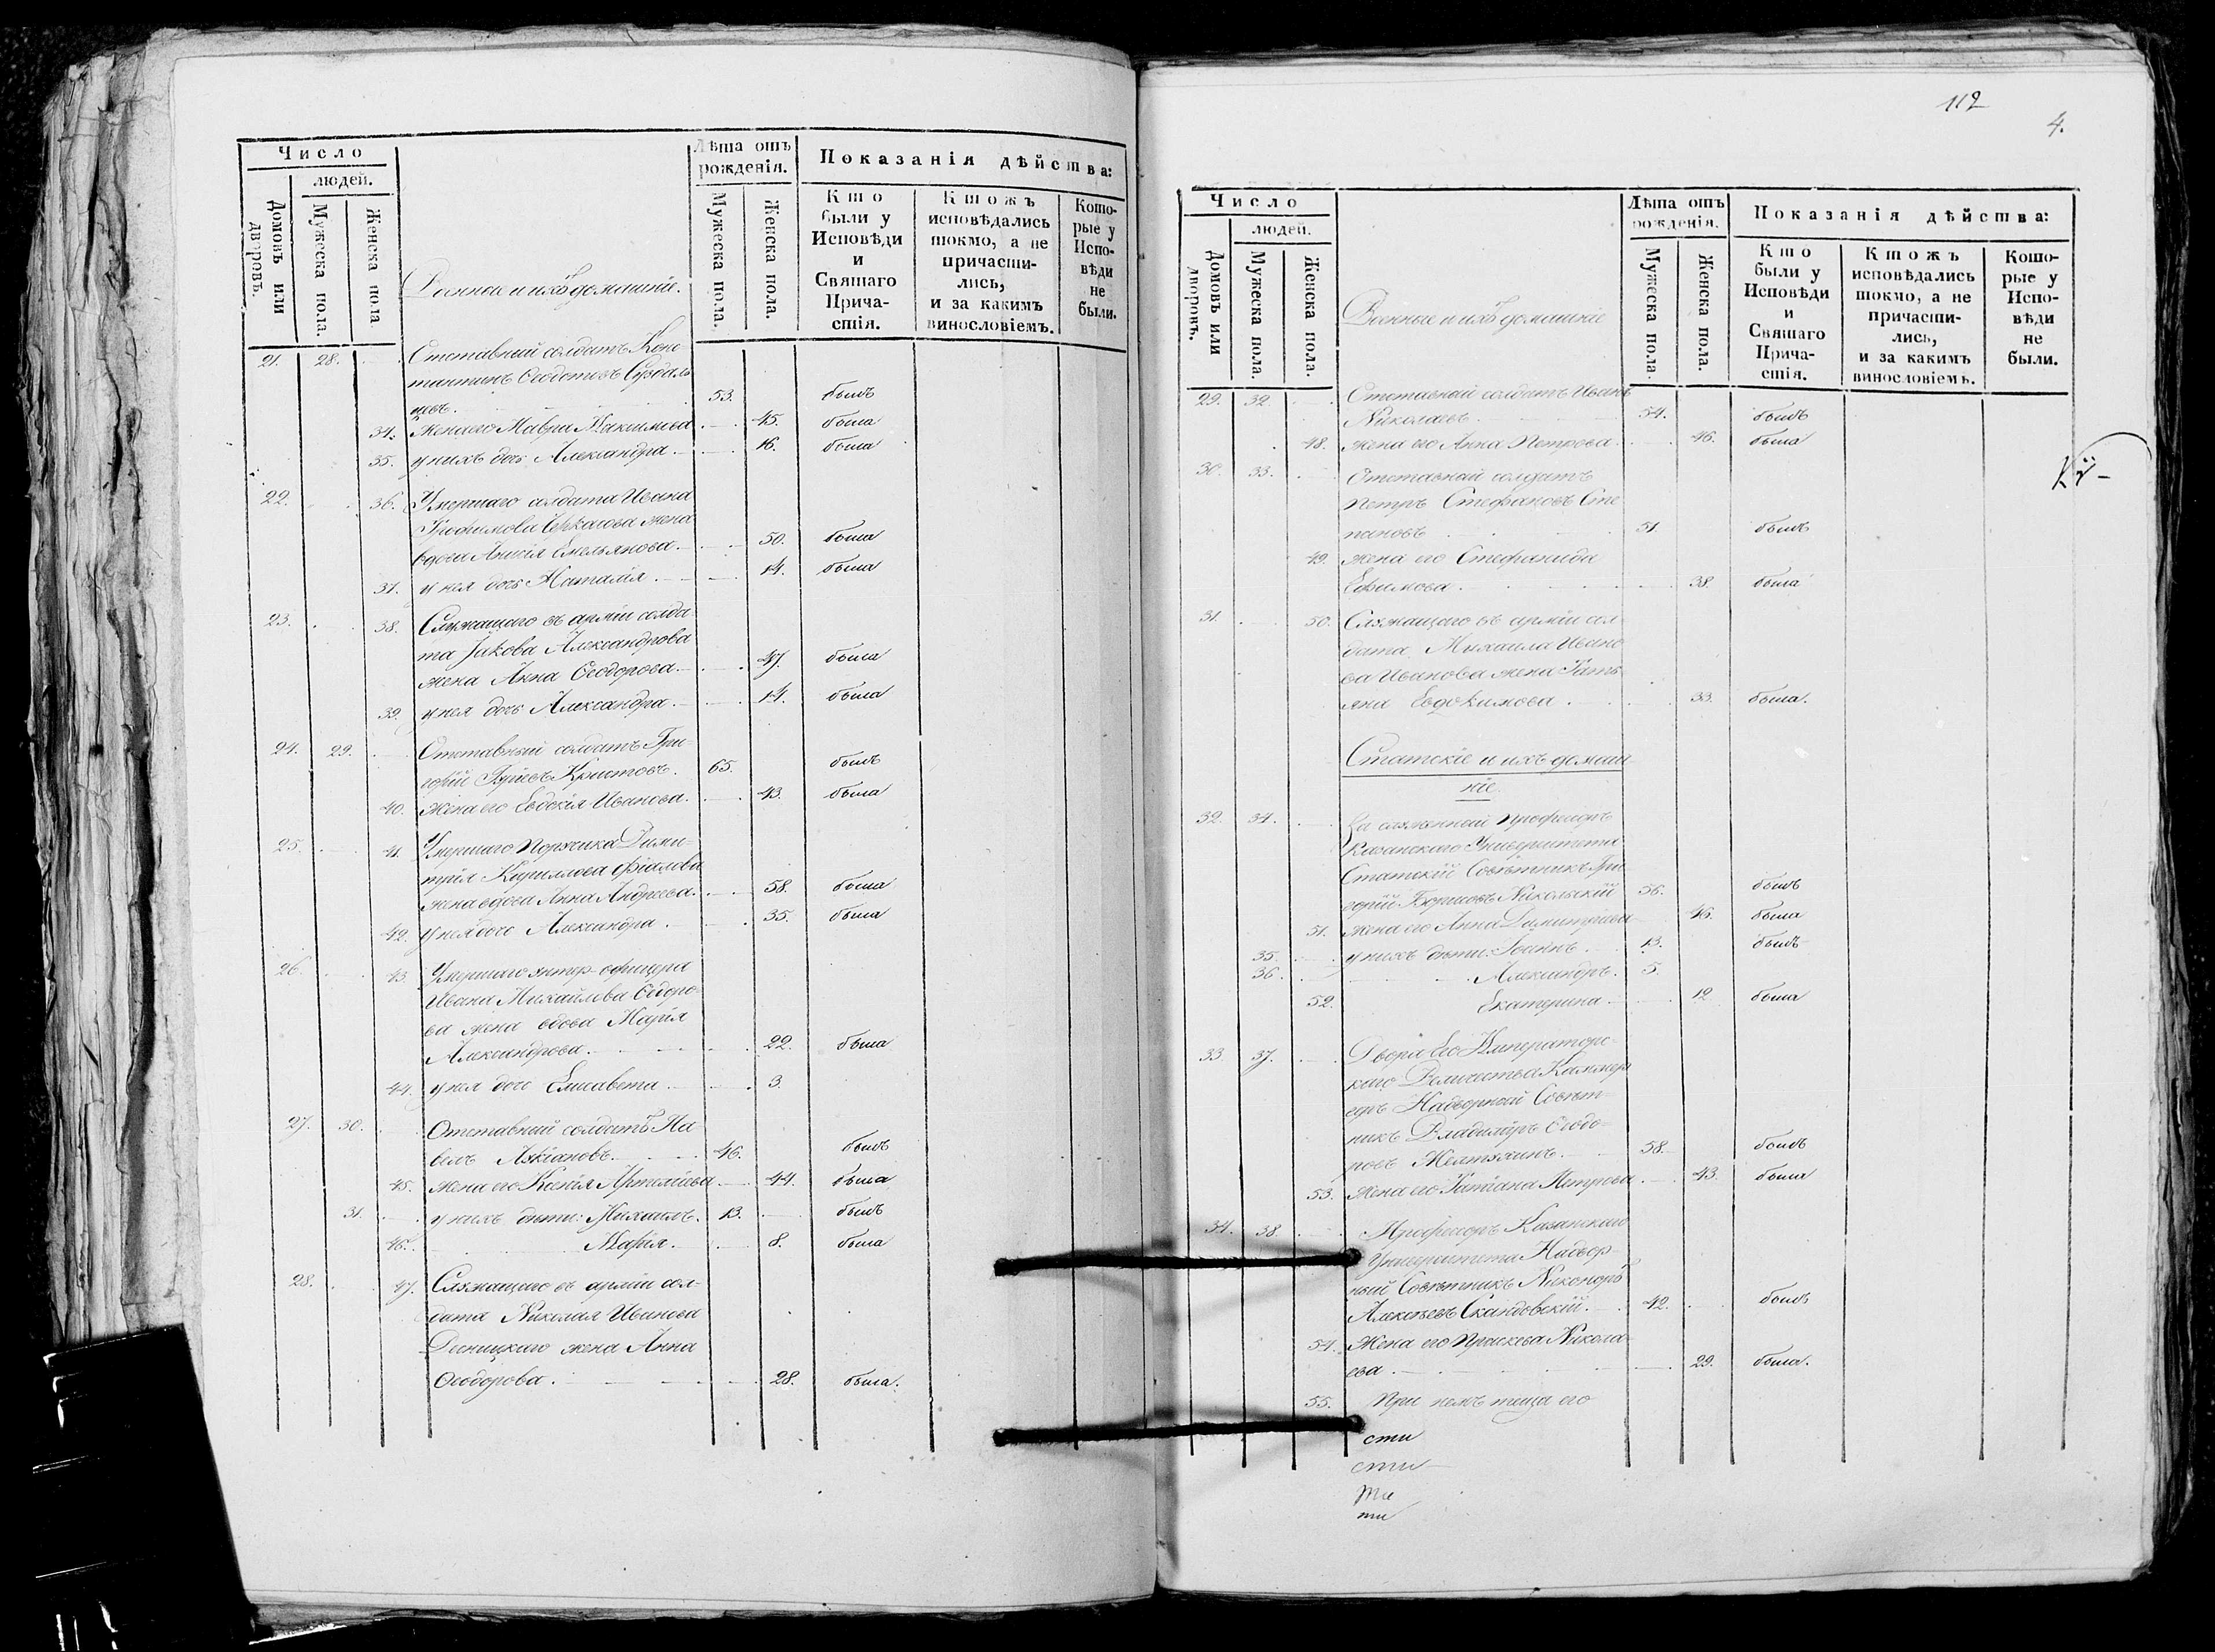 Число
людей.
Домовъ или дворовъ.
Мужеска пола.
Женска пола
Военные и ихъ домашніе.
Лѣта отъ рожденія.
Мужеска пола.
Женска пола.
Показанія дѣйства:
Кто были у Исповѣди и Святаго Причастія.
Ктожъ исповѣдались токмо, а не причастились, и за какимъ винословіемъ.
Которые у Исповѣди не были.
21. 28. Отставный солдатъ Конс
тантинъ Ѳеодотовъ Суздаль
цевъ. 53. былъ
34. Жена его Мавра Максимова 45. была
35. у нихъ дочь Александра 16. была
22. 36. Умершаго солдата Ивана
Трофимова Черкасова жена
вдова Анисія Емельянова 50. была
37. у нея дочь Наталія 14. была
23. 38. Служащаго въ арміи солда
та Іакова Александрова
жена Анна Ѳеодорова 47. была
39. у нея дочь Александра 14. была
24. 29. Отставный солдатъ Гри
горій Христовъ. 65. былъ
40. Жена его Евдокія Иванова 43. была
25. 41. Умершаго Поручика Дими-
трія Кириллова Фіалова
жена вдова Анна Андреева 58. была
42. у нея дочь Александра 35. была
26. 43. Умершаго унтер-офицера
Ивана Михайлова Ѳедоро-
ва жена вдова Марія
Александрова 22. была
44. у нея дочь Елисавета 3.
27. 30. Отставный солдатъ Па
велъ Лукіановъ 46. былъ
45. жена его Ксенія 44. была
31. у нихъ дѣти: Михаилъ. 13. былъ
46. Марія. 8. была
28. 47. Служащаго въ арміи сол-
дата Николая Иванова
Десницкаго жена Анна
Ѳеодорова. 28. была.
112
4.
Число
людей.
Домовъ или дворовъ.
Мужеска пола.
Женска пола.
Военные и ихъ домашніе
Лѣта отъ рожденія.
Мужеска пола.
Женска пола.
Показанія дѣйства:
Кто были у Исповѣди и Святаго Причастія.
Ктожъ исповѣдались токмо, а не причастились, и за какимъ винословіемъ.
Которые у Исповѣди не были.
29. 32 Отставный солдатъ Иванъ
Николаевъ 54. былъ
48. жена его Анна Петрова 46. была
30. 33. Отставный солдатъ
Петръ Стефановъ Сте
пановъ 51. былъ
49. жена его Стефанида
Ефимова 38. была
31. 50. Служащаго въ арміи сол
дата Михаила Ивано
ва Иванова жена Тать
яна Евдокимова 33. была.
Статскіе и ихъ домаш
ніе.
32. 34. Заслуженный Профессоръ
Казанскаго Университета
Статскій Совѣтникъ Гри
горій Борисовъ Никольскій 56. былъ
51. жена его Анна Димитріева 46. была
35. у нихъ дѣти: Іоаннъ 13. былъ
36. Александръ. 5.
52. Екатерина 12 была
33. 37. Двора Его Императорс-
каго Величества Каммер
еръ Надворный Совѣт-
никъ Владиміръ Ѳеодо-
ровъ Желтухинъ 58. былъ
53. жена его Татіана Петрова 43. была
34. 38. Профессоръ Казанскаго
Университета Надвор-
ный Совѣтникъ Никаноръ
Алексѣевъ Скандовскій. 42. былъ
54. Жена его Прасковья Никола-
ева 29. была.
55. При немъ теща его
сти
сти
ти
ти